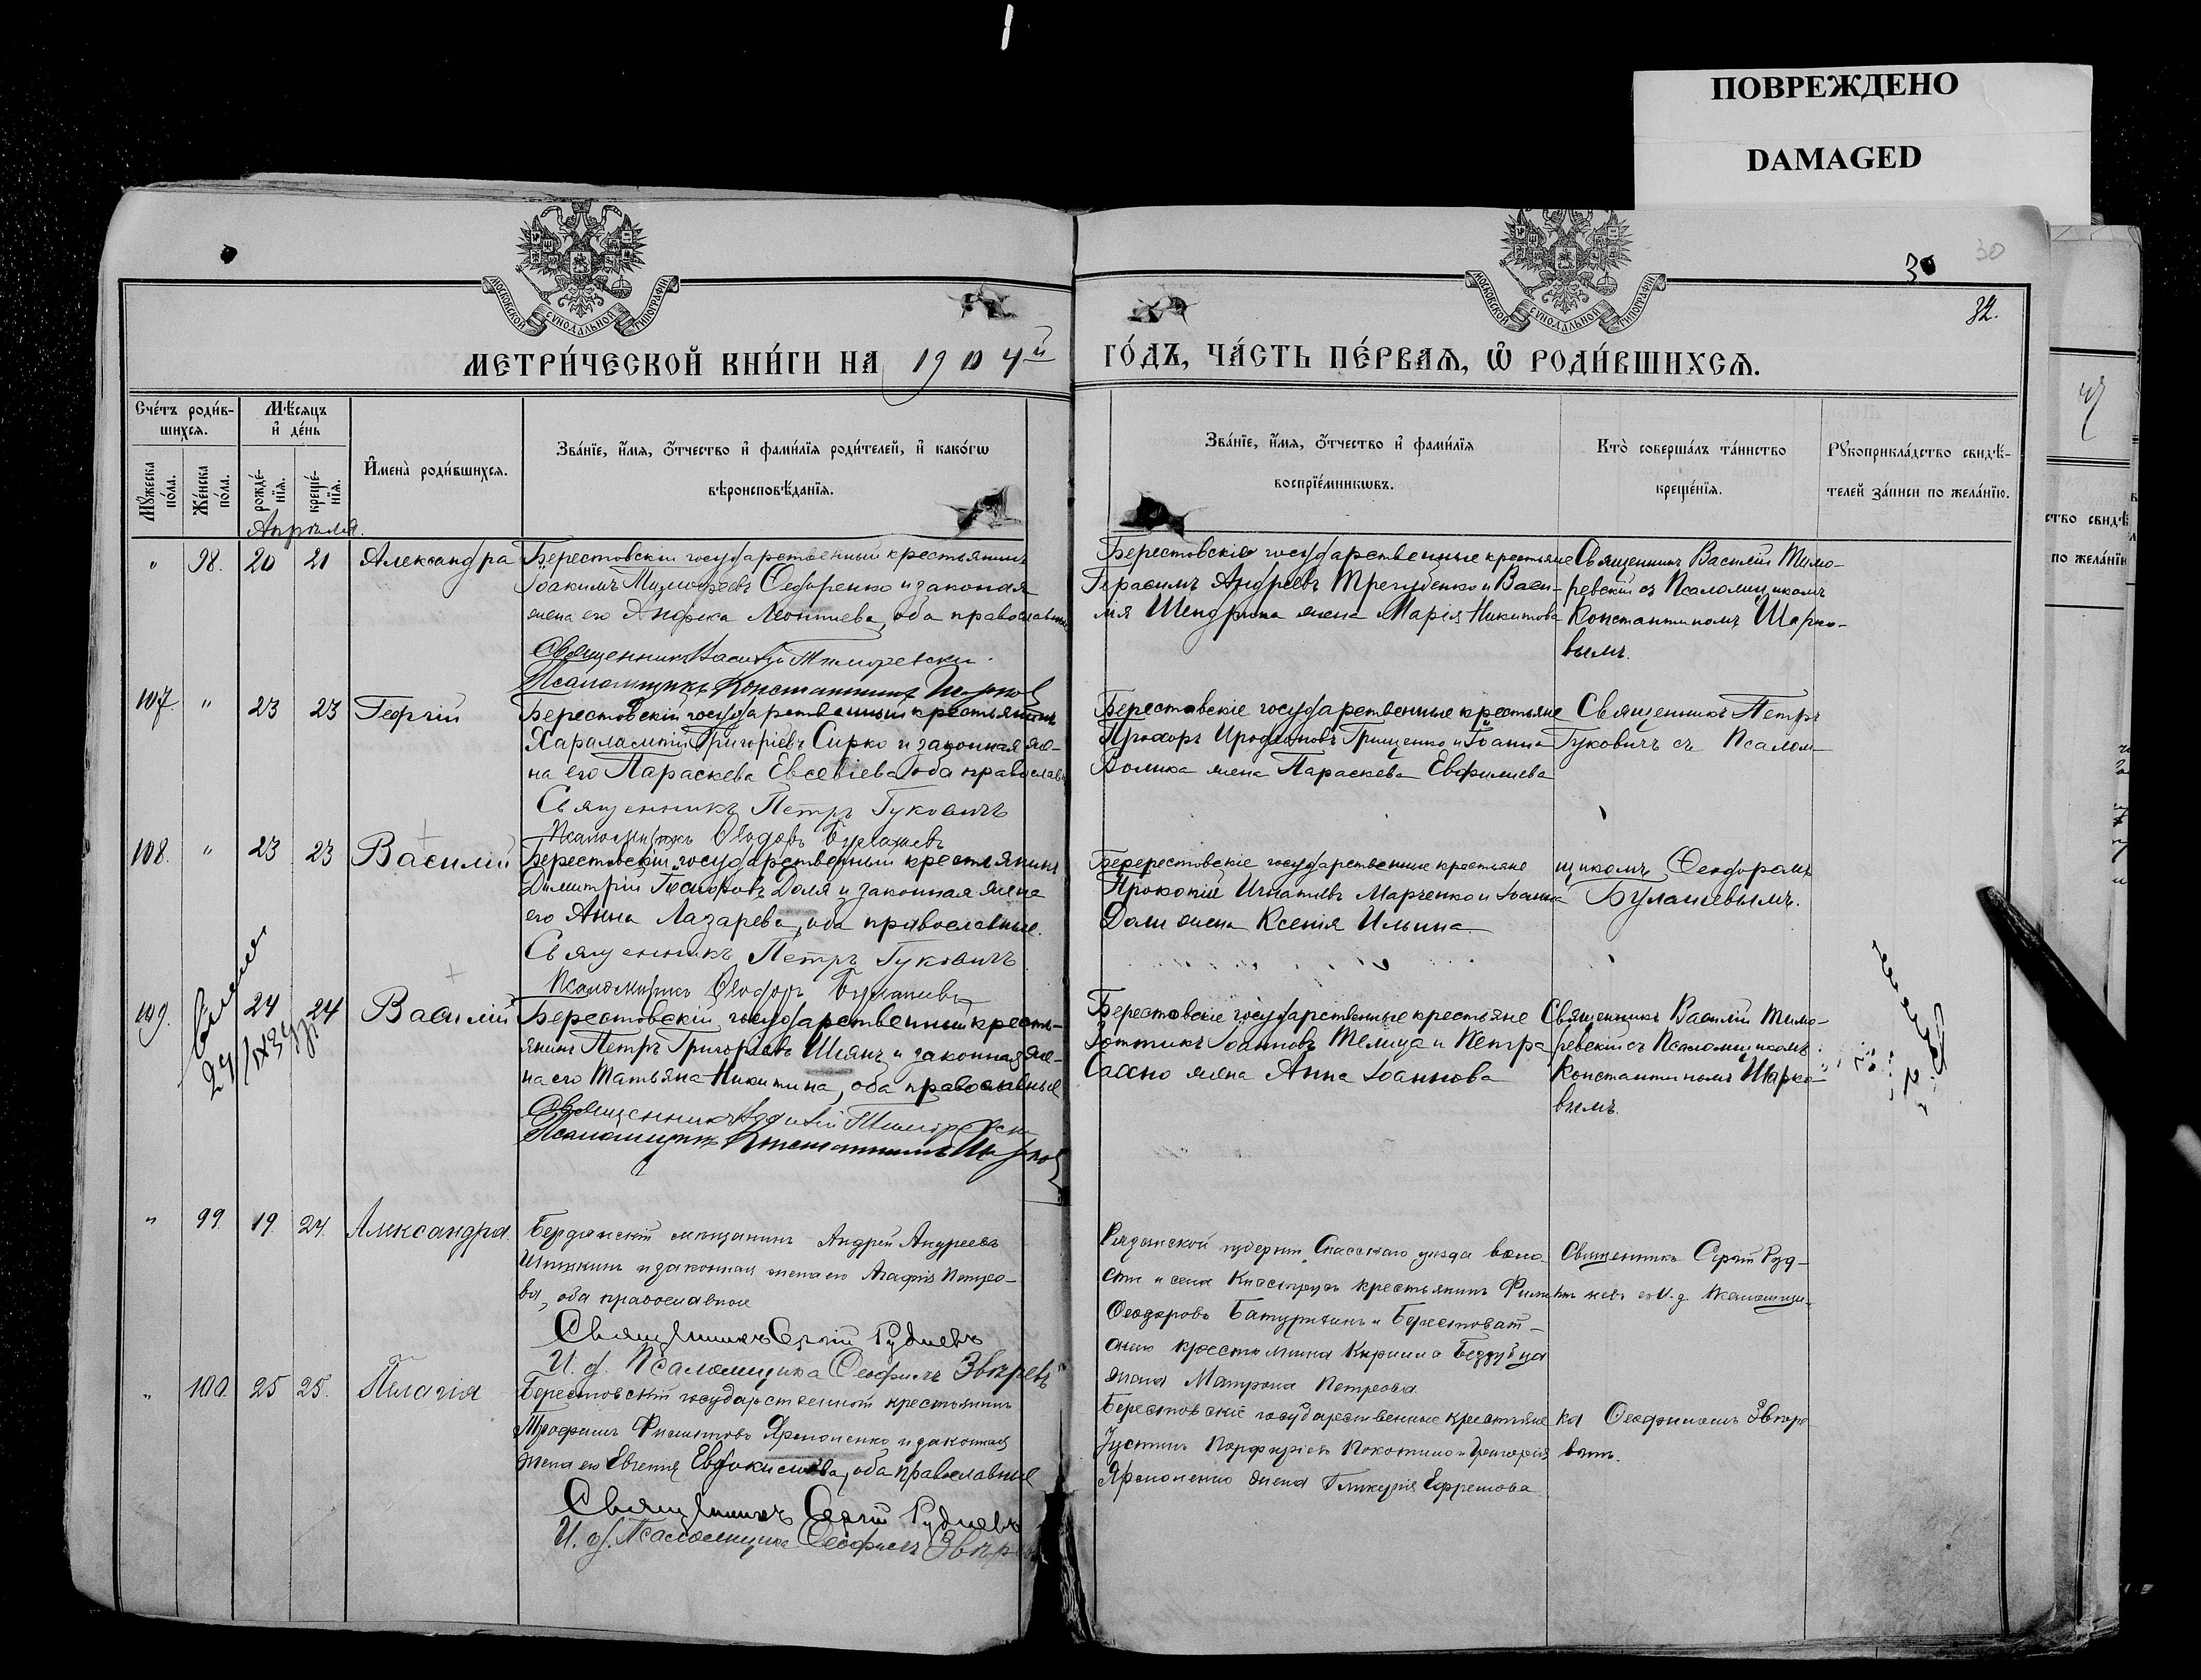 ПОВРЕЖДЕНО
DAMAGED
30
30
32.
МОСКОВСКОЙ СѴНОДАЛЬНОЙ ТИПОГРАФІИ
МОСКОВСКОЙ СѴНОДАЛЬНОЙ ТИПОГРАФІИ
МЕТРИ́ЧЕСКОЙ КНИ́ГИ НА 1904й ГО́ДЪ, ЧА́СТЬ ПЕ́РВАЯ, Ѡ РОДИ́ВШИХСЯ.
Сче́тъ роди́в-
шихся.
Мѣ́сяцъ
и де́нь
Мꙋ́жеска
по́ла.
Же́нска
по́ла.
рожде́-
нїя.
креще́-
нїя.
Имена̀ роди́вшихся.
Зва́нїе, и́мя, ѻ́тчество и фами́лїя роди́телей, и како́гѡ
вѣроисповѣ́данїя.
Зва́нїе, и́мя, ѻ́тчество и фами́лїя
воспрїе́мникѡвъ.
Кто̀ соверша́лъ та́инство
креще́нїя.
Рꙋкоприкла́дство свидѣ́-
телей за́писи по жела́нїю.
Апрѣля.
" 98. 20 21 Александра
Берестовскій государственный крестьянинъ
Іоакимъ Тимофеевъ Ѳедоренко и законная
жена его Леонтиева, оба православные
Священникъ Василій Тиморевскій.
Псаломщикъ Константинъ Шарков
Берестовскіе государственные крестьяне
Герасимъ Андреевъ Трегубенко и Васи-
лія жена Марія Никитова
Священникъ Василій Тимо-
ревскій съ Псаломщикомъ
Константиномъ Шарко-
вымъ.
107. " 23 23 Георгій
Берестовскій государственный крестьянинъ
Харалампій Григоріевъ Сирко и законная же-
на его Параскева Евсевіева оба православн
Священникъ Петръ Гуковичъ
Псаломщикъ Ѳеодоръ Булашевъ
Берестовскіе государственные крестьяне
Прохоръ Иродіоновъ Грищенко и Іоанна
Волика жена Параскева Евфимиева
Священникъ Петръ
Гуковичъ съ Псалом-
108. " 23 23 Василій
Берестовскій государственный крестьянинъ
Димитрій Доля и законная жена
его Анна Лазарева, оба православные.
Священникъ Петръ Гуковичъ
Псаломщикъ Ѳеодоръ Булашевъ
Беререстовскіе государственные крестьяне
Прокопій Игнатіевъ Марченко и Іоанна
Доли жена Ксенія Ильина
щикомъ Ѳеодоромъ
Булашевымъ.
109. 24 24 Василій
Берестовскій государственный кресть-
янинъ Петръ Григоріевъ Шіянъ и законная же-
на его Татьяна Никитина, оба православные
Священникъ Василій Тиморевскій
Псаломщикъ Константинъ Шарков
Берестовскіе государственные крестьяне
Зоттикъ Іоанновъ Телица и Петра
Сахно жена Анна Іоаннова
Священникъ Василій Тимо-
ревскій съ Псаломщикомъ
Константиномъ Шарко-
вымъ.
" 99. 19. 24. Александра.
Бердянскій мещанинъ Андрей Андреевъ
и законная жена его Агафія Петро-
ва, оба православные
Священникъ Сергій Рудневъ
И. д. Псаломщика Ѳеофилъ Звѣревъ
Рязанской губерніи Спасскаго уезда воло-
сти и села крестьянинъ
Ѳеодоровъ Батуринъ и Берестоват-
скаго крестьянина Кирилла
жена Матрона Петрова
Священникъ Сергій Руд-
невъ съ И. д. Псаломщи-
" 100. 25 25. Пелагія
Берестовскій государственный крестьянинъ
Трофимъ Филипповъ Ярмоленко и законная
жена его Евгенія Евдокимова, оба православные
Священникъ Сергій Рудневъ
И. д. Псаломщика Ѳеофилъ Звѣревъ
Берестовскіе государственные крестьяне
Іустинъ Порфиріевъ и Григорія
Ярмоленко жена Гликерія Ефремова
ка Ѳеофиломъ Звѣре-
вымъ.
ство свидѣ
по жела́нїю